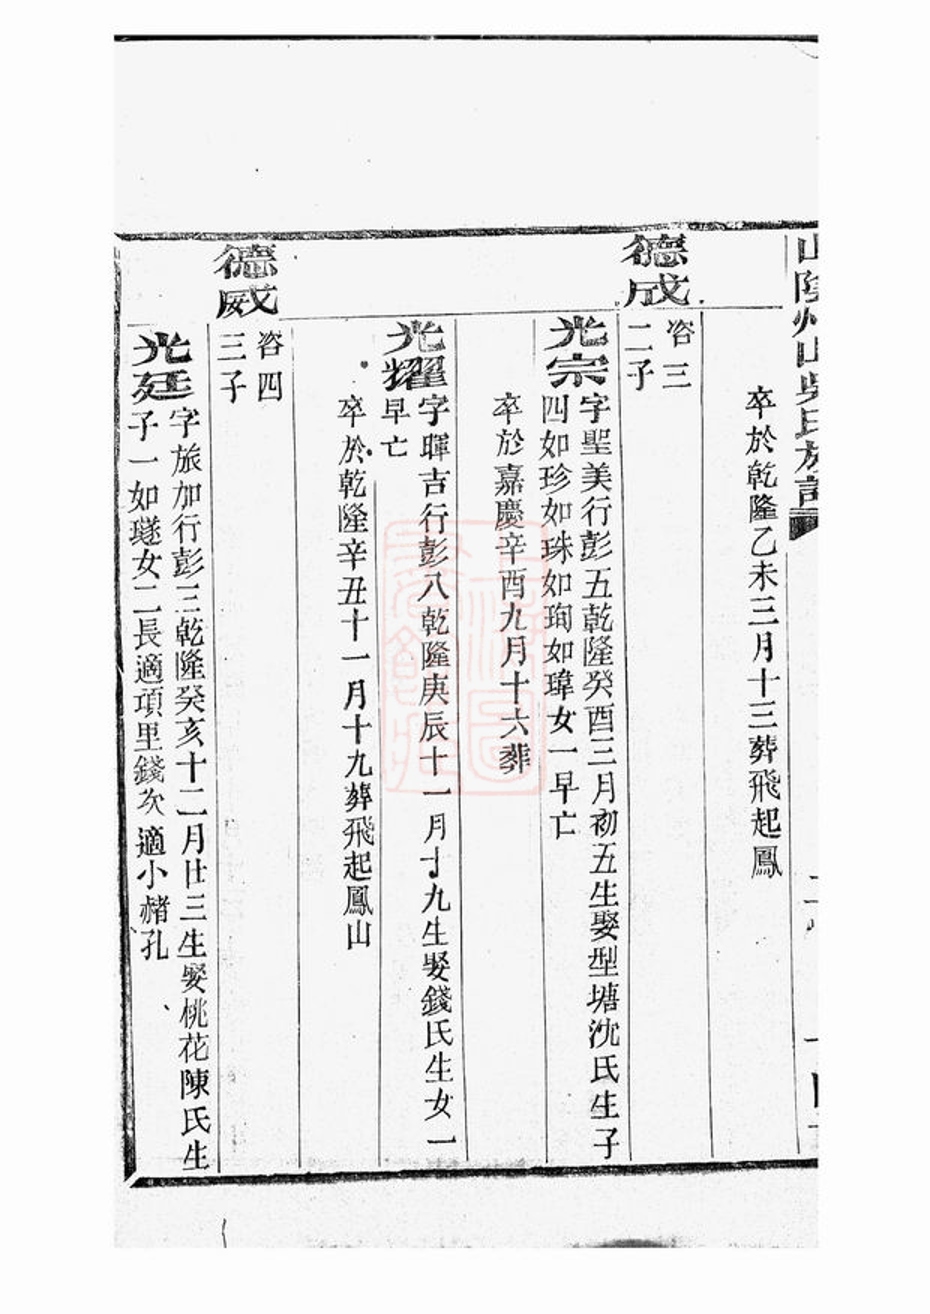 山陰州山吳氏族譜
卒於乾隆乙未三月十三葬飛起鳳
德成
咨三
二子
光宗
字聖美行彭五乾隆癸酉三月初五生娶型塘沈氏生子
四如珍如珠如珣如瑋女一早亡
卒於嘉慶辛酉九月十六葬
光耀
字暉吉行彭八乾隆庚辰十一月十九生娶錢氏生女一
早亡
卒於乾隆辛丑十一月十九葬飛起鳳山
德威
咨四
三子
光廷
字旅加行彭三乾隆癸亥十二月廿三生娶桃花陳氏生
子一如璲女二長適項里錢次適小赭孔